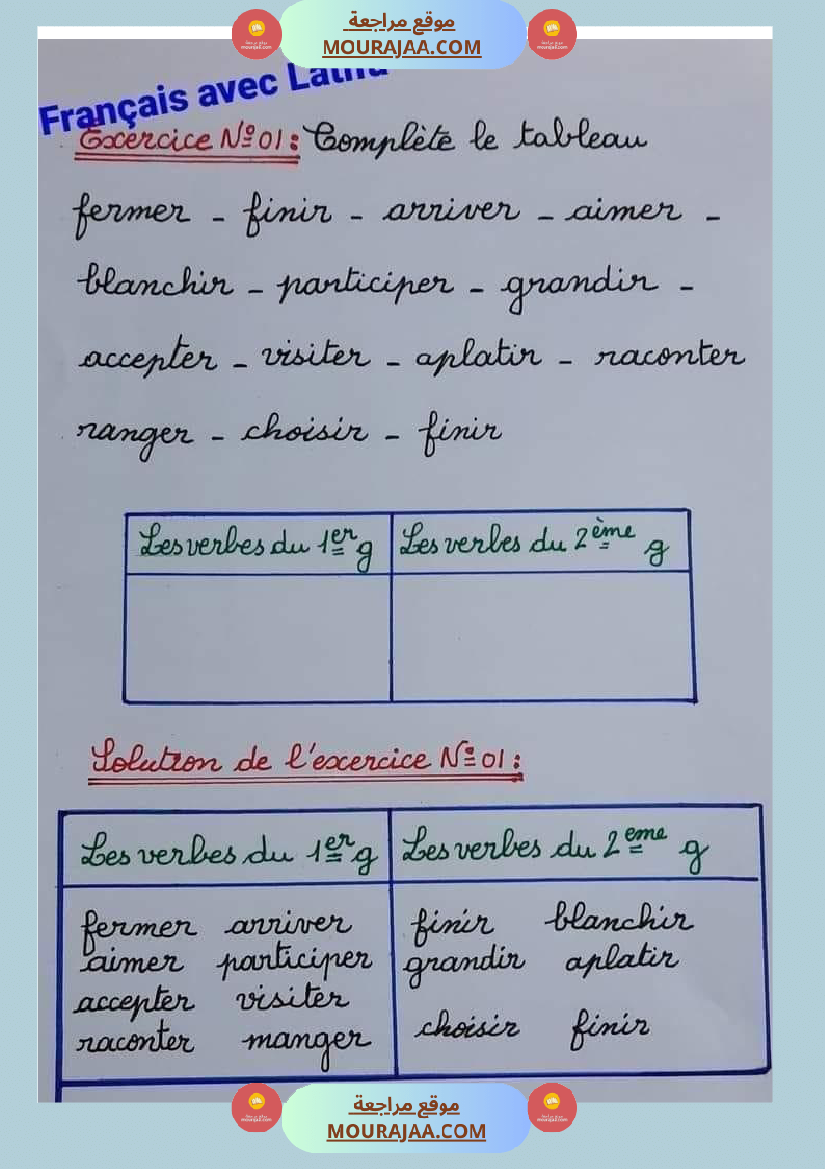 موقع مراجعة
MOURAJAA.COM
Français avec Latifa
Exercice Nº 01 : Complète le tableau
fermer - finir - arriver - aimer -
blanchir - participer - grandir -
accepter - visiter - aplatir - raconter
ranger - choisir - finir
Les verbes du 1er g Les verbes du 2ème g
Solution de l'exercice Nº 01 :
Les verbes du 1er g Les verbes du 2eme g
fermer arriver finir blanchir
aimer participer grandir aplatir
accepter visiter
raconter manger choisir finir
موقع مراجعة
MOURAJAA.COM